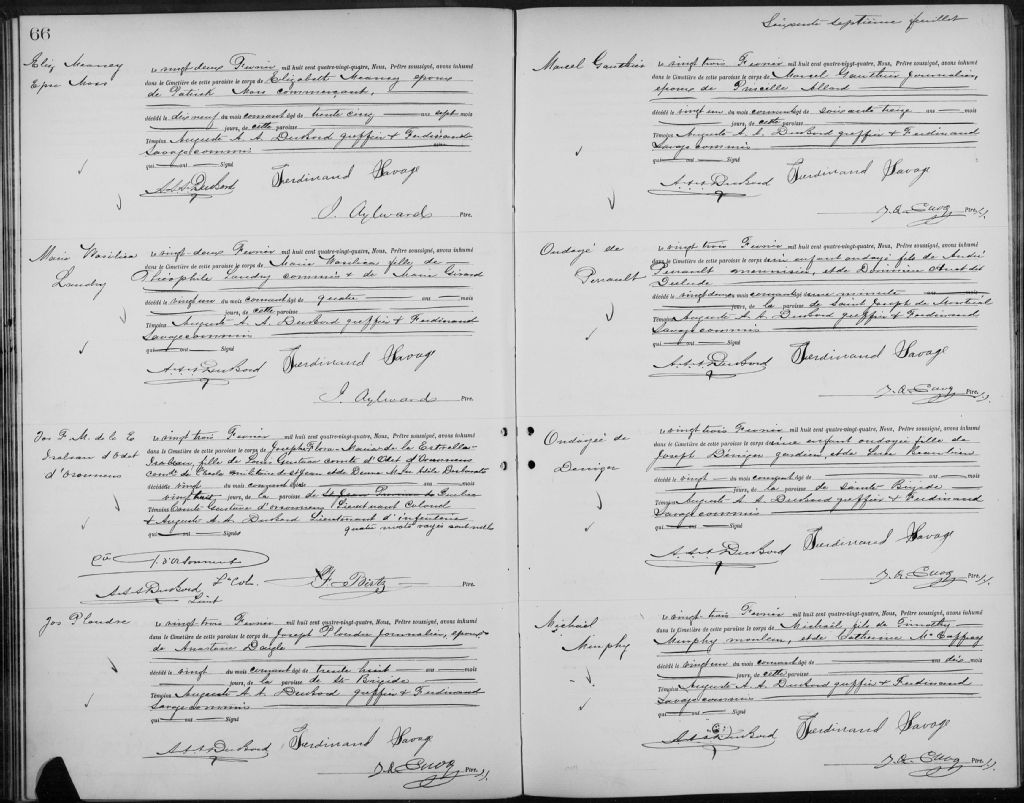 66
Eliz Meaney
Epse Moss
Le vingt deux Fevrier mil huit cent quatre-vingt-quatre, Nous, Prêtre soussigné, avons inhumé
dans le Cimetière de cette paroisse le corps de Elizabeth Meaney epouse
de Patrick Moss commerçant,
décédé le dix neuf du mois courant âgé de trente cinq ans sept mois
jours, de cette paroisse
Témoins Auguste A. A. DuBord greffier & Ferdinand
Savage commis
qui ont Signé
A.A.A. DuBord Ferdinand Savage
J. Aylward Ptre.
Marie
Landry
Le vingt deux Fevrier mil huit cent quatre-vingt-quatre, Nous, Prêtre soussigné, avons inhumé
dans le Cimetière de cette paroisse le corps de Marie fille de
Théophile Landry commis & de Marie Girard
décédé le vingt un du mois courant âgé de quatre ans mois
jours, de cette paroisse
Témoins Auguste A. A. DuBord greffier & Ferdinand
Savage commis
qui ont Signé
A.A.A. DuBord Ferdinand Savage
J. Aylward Ptre.
Jos F. M. de la E
d'Odet
d'Orsonnens
Le vingt trois Fevrier mil huit cent quatre-vingt-quatre, Nous, Prêtre soussigné, avons inhumé
dans le Cimetière de cette paroisse le corps de Josephe Flora Maria de la Estrella
fille de Louis Gustave comte d'Odet d'Orsonnens
comdt de l'ecole militaire de St Jean et de Dame
décédée le vingt du mois courant âgée
vingt huit jours, de la paroisse de St Jean Province de Quebec
Témoins Comte Gustave d'Orsonnens Lieutenant Colonel
& Auguste A. A. DuBord Lieutenant d'infanterie
qui ont Signés quatre mots rayés sont nuls
Cte d'Orsonnens
Lt Col.
A.A.A. DuBord
Lieut
F. Birtz Ptre.
Jos Ploudre
Le vingt trois Fevrier mil huit cent quatre-vingt-quatre, Nous, Prêtre soussigné, avons inhumé
dans le Cimetière de cette paroisse le corps de Joseph Ploudre journalier, epoux
de Anastasie Daigle
décédé le vingt du mois courant âgé de trente huit ans mois
jours, de la paroisse de Ste Brigide
Témoins Auguste A. A. DuBord greffier & Ferdinand
Savage commis
qui ont Signé
A.A.A. DuBord Ferdinand Savage
J. A. Cuoq Ptre. S.S.
Soixante septieme feuillet
Marcel Gauthier
Le vingt trois Fevrier mil huit cent quatre-vingt-quatre, Nous, Prêtre soussigné, avons inhumé
dans le Cimetière de cette paroisse le corps de Marcel Gauthier journalier,
epoux de Priscille Allard
décédé le vingt un du mois courant âgé de soixante treize ans mois
jours, de cette paroisse
Témoins Auguste A. A. DuBord greffier & Ferdinand
Savage commis
qui ont Signé
A.A.A. DuBord Ferdinand Savage
J. A. Cuoq Ptre. S.S.
Ondoyé de
Perrault
Le vingt trois Fevrier mil huit cent quatre-vingt-quatre, Nous, Prêtre soussigné, avons inhumé
dans le Cimetière de cette paroisse le corps de un enfant ondoyé fils de André
Perrault menuisier, et de
décédé le vingt deux du mois courant âgé une minute ans mois
jours, de la paroisse de Saint Joseph de Montréal
Témoins Auguste A. A. DuBord greffier & Ferdinand
Savage commis
qui ont Signé
A.A.A. DuBord Ferdinand Savage
J. A. Cuoq Ptre. S.S.
Ondoyée de
Deniger
Le vingt trois Fevrier mil huit cent quatre-vingt-quatre, Nous, Prêtre soussigné, avons inhumé
dans le Cimetière de cette paroisse le corps de une enfant ondoyée fille de
Joseph Deniger gardien, et de Luce Beaulieu
décédé le vingt du mois courant âgé de ans mois
jours, de la paroisse de Sainte Brigide
Témoins Auguste A. A. DuBord greffier & Ferdinand
Savage commis
qui ont Signé
A.A.A. DuBord Ferdinand Savage
J. A. Cuoq Ptre. S.S.
Michael
Murphy
Le vingt trois Fevrier mil huit cent quatre-vingt-quatre, Nous, Prêtre soussigné, avons inhumé
dans le Cimetière de cette paroisse le corps de Michael, fils de Timothy
Murphy mouleur, et de Catherine McCaffrey
décédé le vingt un du mois courant âgé de ans dix mois
jours, de cette paroisse
Témoins Auguste A. A. DuBord greffier & Ferdinand
Savage commis
qui ont Signé
A.A.A. DuBord Ferdinand Savage
J. A. Cuoq Ptre. S.S.